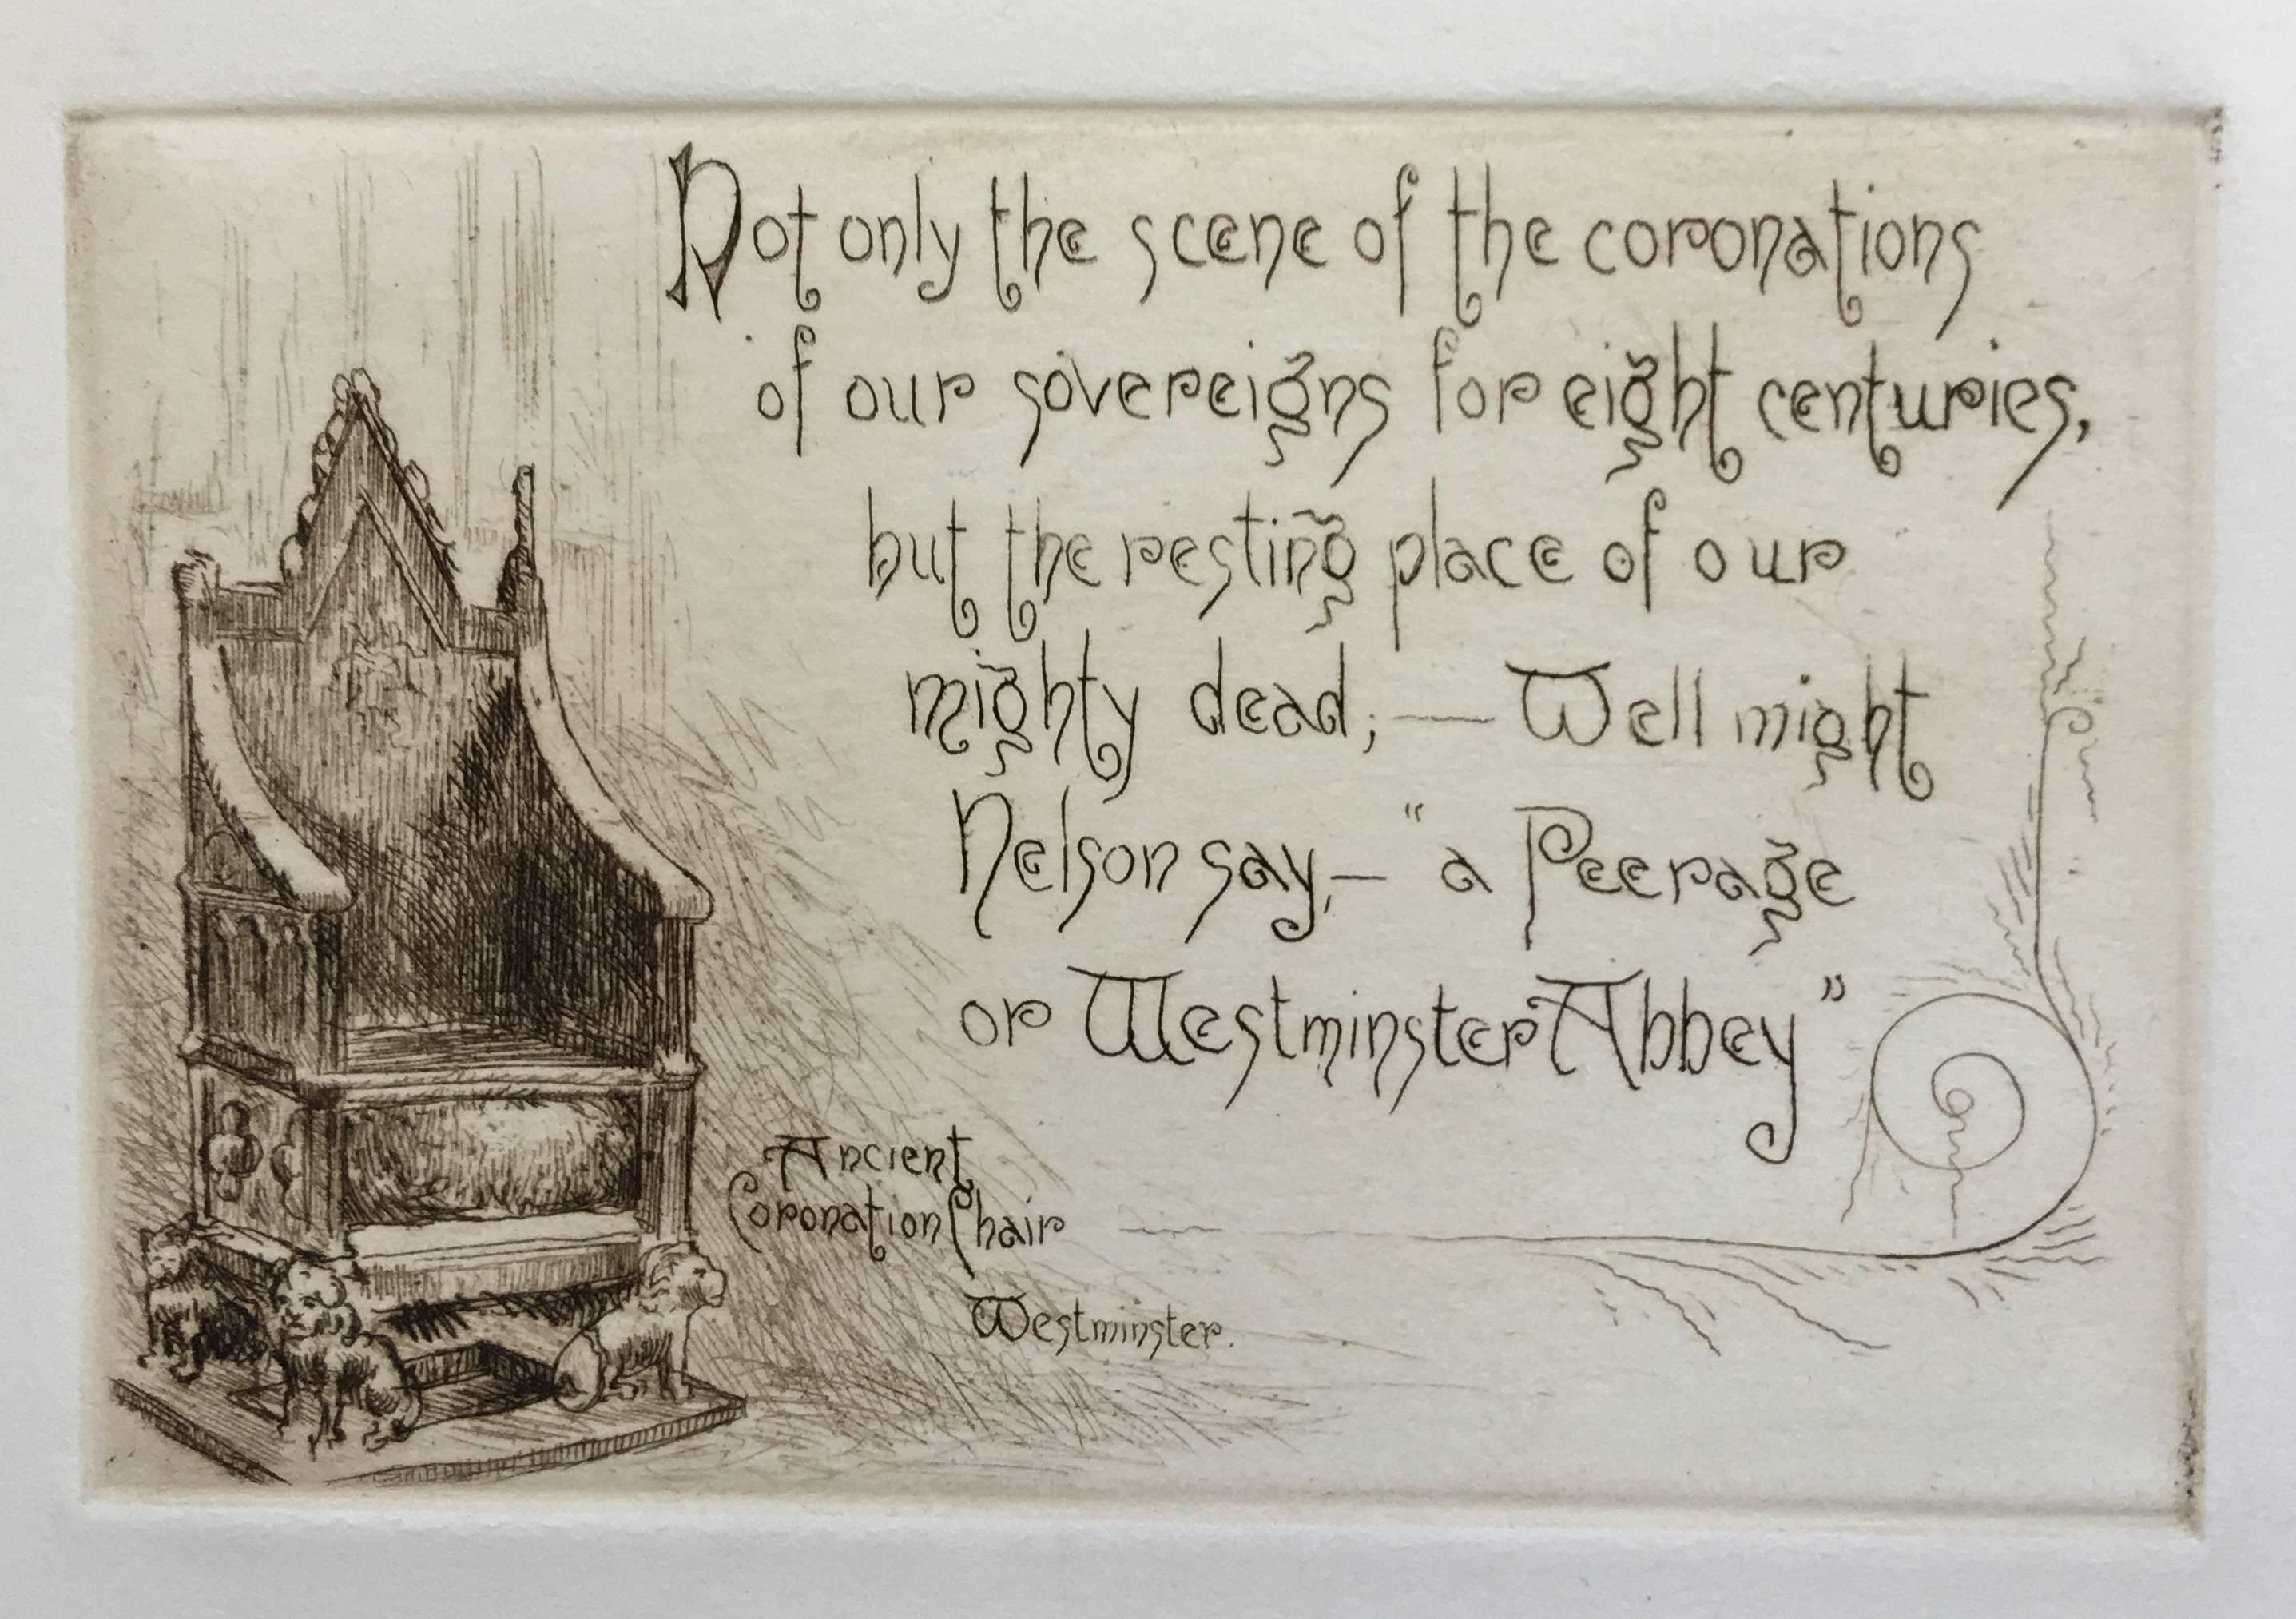 Not only the scene of the coronations
of our sovereigns for eight centuries,
but the resting place of our
mighty dead;— Well might
Nelson say,— "a Peerage
or Westminster Abbey"
Ancient
Coronation Chair
Westminster.